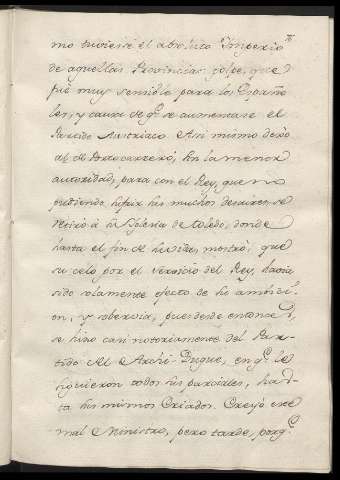 76
mo tuviese el absoluto Imperio
de aquellas Provincias: golpe, que
fuè muy sensible para los Españo
les, y causa de q.e se aumentase el
Partido Austriaco. Asi mismo dexò
al de Portocarrero, sin la menor
autoridad, para con el Rey, que no
pudiendo sufrir sus muchos desaires se
retirò à su Iglesia de Toledo, donde
hasta el fin de su vida, mostrò, que
su celo por el servicio del Rey, havia
sido solamente efecto de su ambici-
on, y sobervia, pues desde entonces,
se hizo casi notoriamente del Par-
tido del Archi-Duque, en q.e le
siguieron todos sus parciales, has-
ta sus mismos Criados. Creyò este
mal Ministro, pero tarde, porq.e